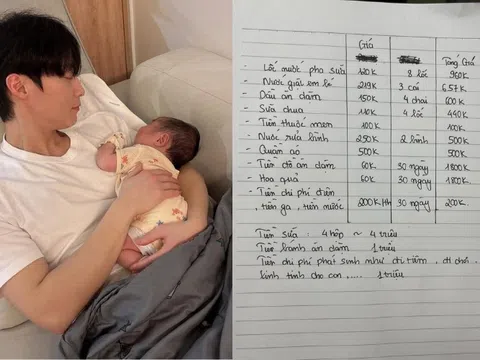 Giá Tổng Giá
- Lốc nước pha sữa 120K 8 lốc 960K
- Nước giặt em bé 219K 3 cái 657K
- Dầu ăn dặm 150K 4 chai 600K
- Sữa chua 110K 4 lốc 440K
- Tiền thuốc men 100K 100K
- Nước rửa bình 250K 2 bình 500K
- Quần áo 500K 500K
- Tiền đồ ăn dặm 60K 30 ngày 1800K
- Hoa quả 60K 30 ngày 1800K
- Tiền chi phí điện
, tiền ga, tiền nước 200K 30 ngày 200K
Tiền sữa : 4 hộp ~ 4 triệu
Tiền bánh ăn dặm 1 triệu
Tiền chi phí phát sinh như đi tiêm, đi chơi,
kinh tính cho con ..... 1 triệu